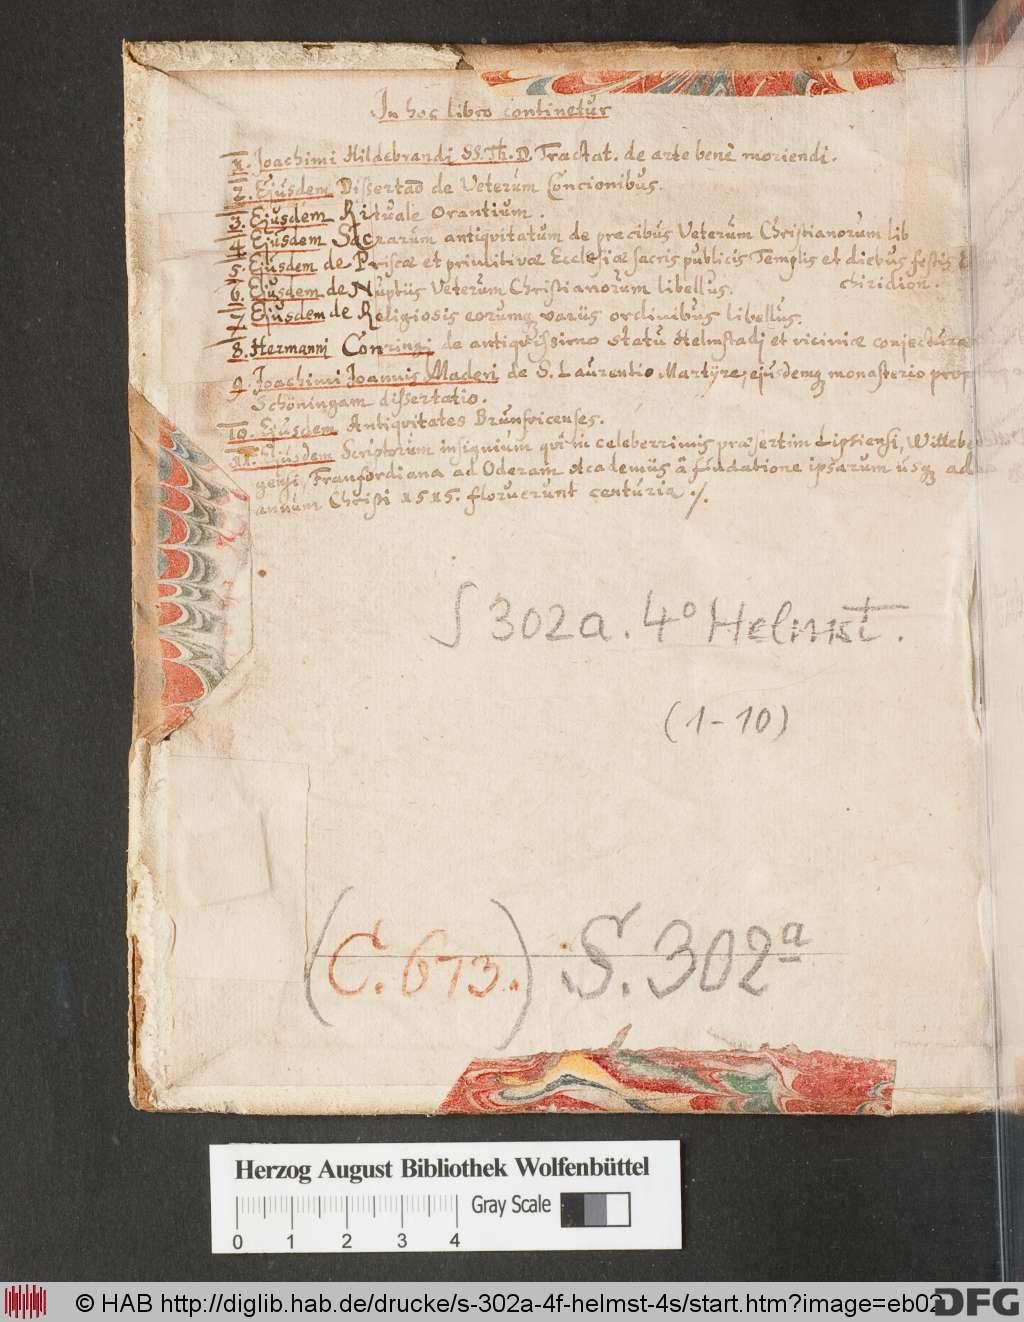 In hoc libro continetur
1. Joachimi Hildebrandi SS. Th. D. Tractat. de arte benè moriendi.
2. Ejusdem Dissertao de Veterum Concionibus.
3. Ejusdem Rituale Orantium.
4. Ejusdem Sacrarum antiqvitatum de precibus Veterum Christianorum lib
5. Ejusdem de Priscæ et primitivæ Ecclesiæ sacris publicis Templis et diebus festis
chiridion.
6. Ejusdem de Nuptiis Veterum Christianorum libellus.
7. Ejusdem de Religiosis eorumq variis ordinibus libellus.
8. Hermanni Conringi de antiqvissimo statu Helmstadj et viciniæ conjecturæ
9. Joachimi Joannis Maderi de S. Laurentio Martyre, ejusdemq monasterio prope
Schöningam dissertatio.
10. Ejusdem Antiqvitates Brunsvicenses.
11. Ejusdem Scriptorum insignium qvi in celeberrimis præsertim Lipsiensi, Witteber
gensi, Francfordiana ad Oderam Academiis â fundatione ipsarum usq ad
annum Christi 1515. floruerunt centuria ./.
S 302a. 4° Helmst.
(1-10)
(C. 673.) S. 302a
Herzog August Bibliothek Wolfenbüttel
Gray Scale
0 1 2 3 4
© HAB http://diglib.hab.de/drucke/s-302a-4f-helmst-4s/start.htm?image=eb02
DFG